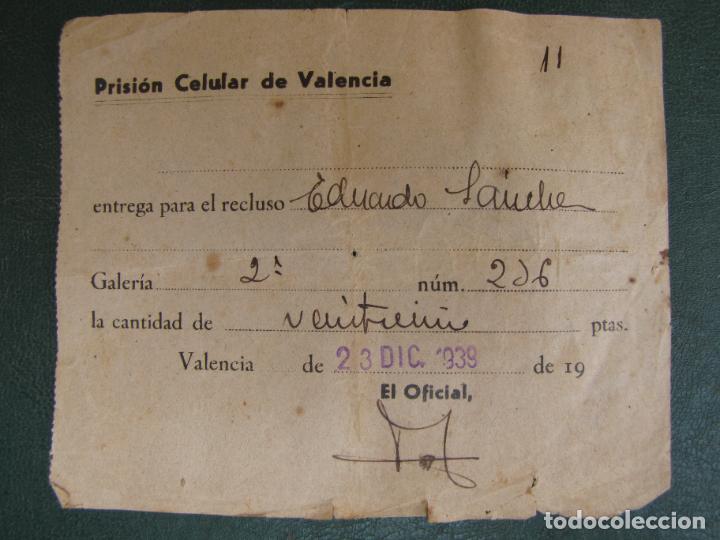 11
Prisión Celular de Valencia
entrega para el recluso Eduardo Sánchez
Galería 2ª núm. 256
la cantidad de ptas.
Valencia de 23 DIC. 1939 de 19
El Oficial,
todocoleccion.net